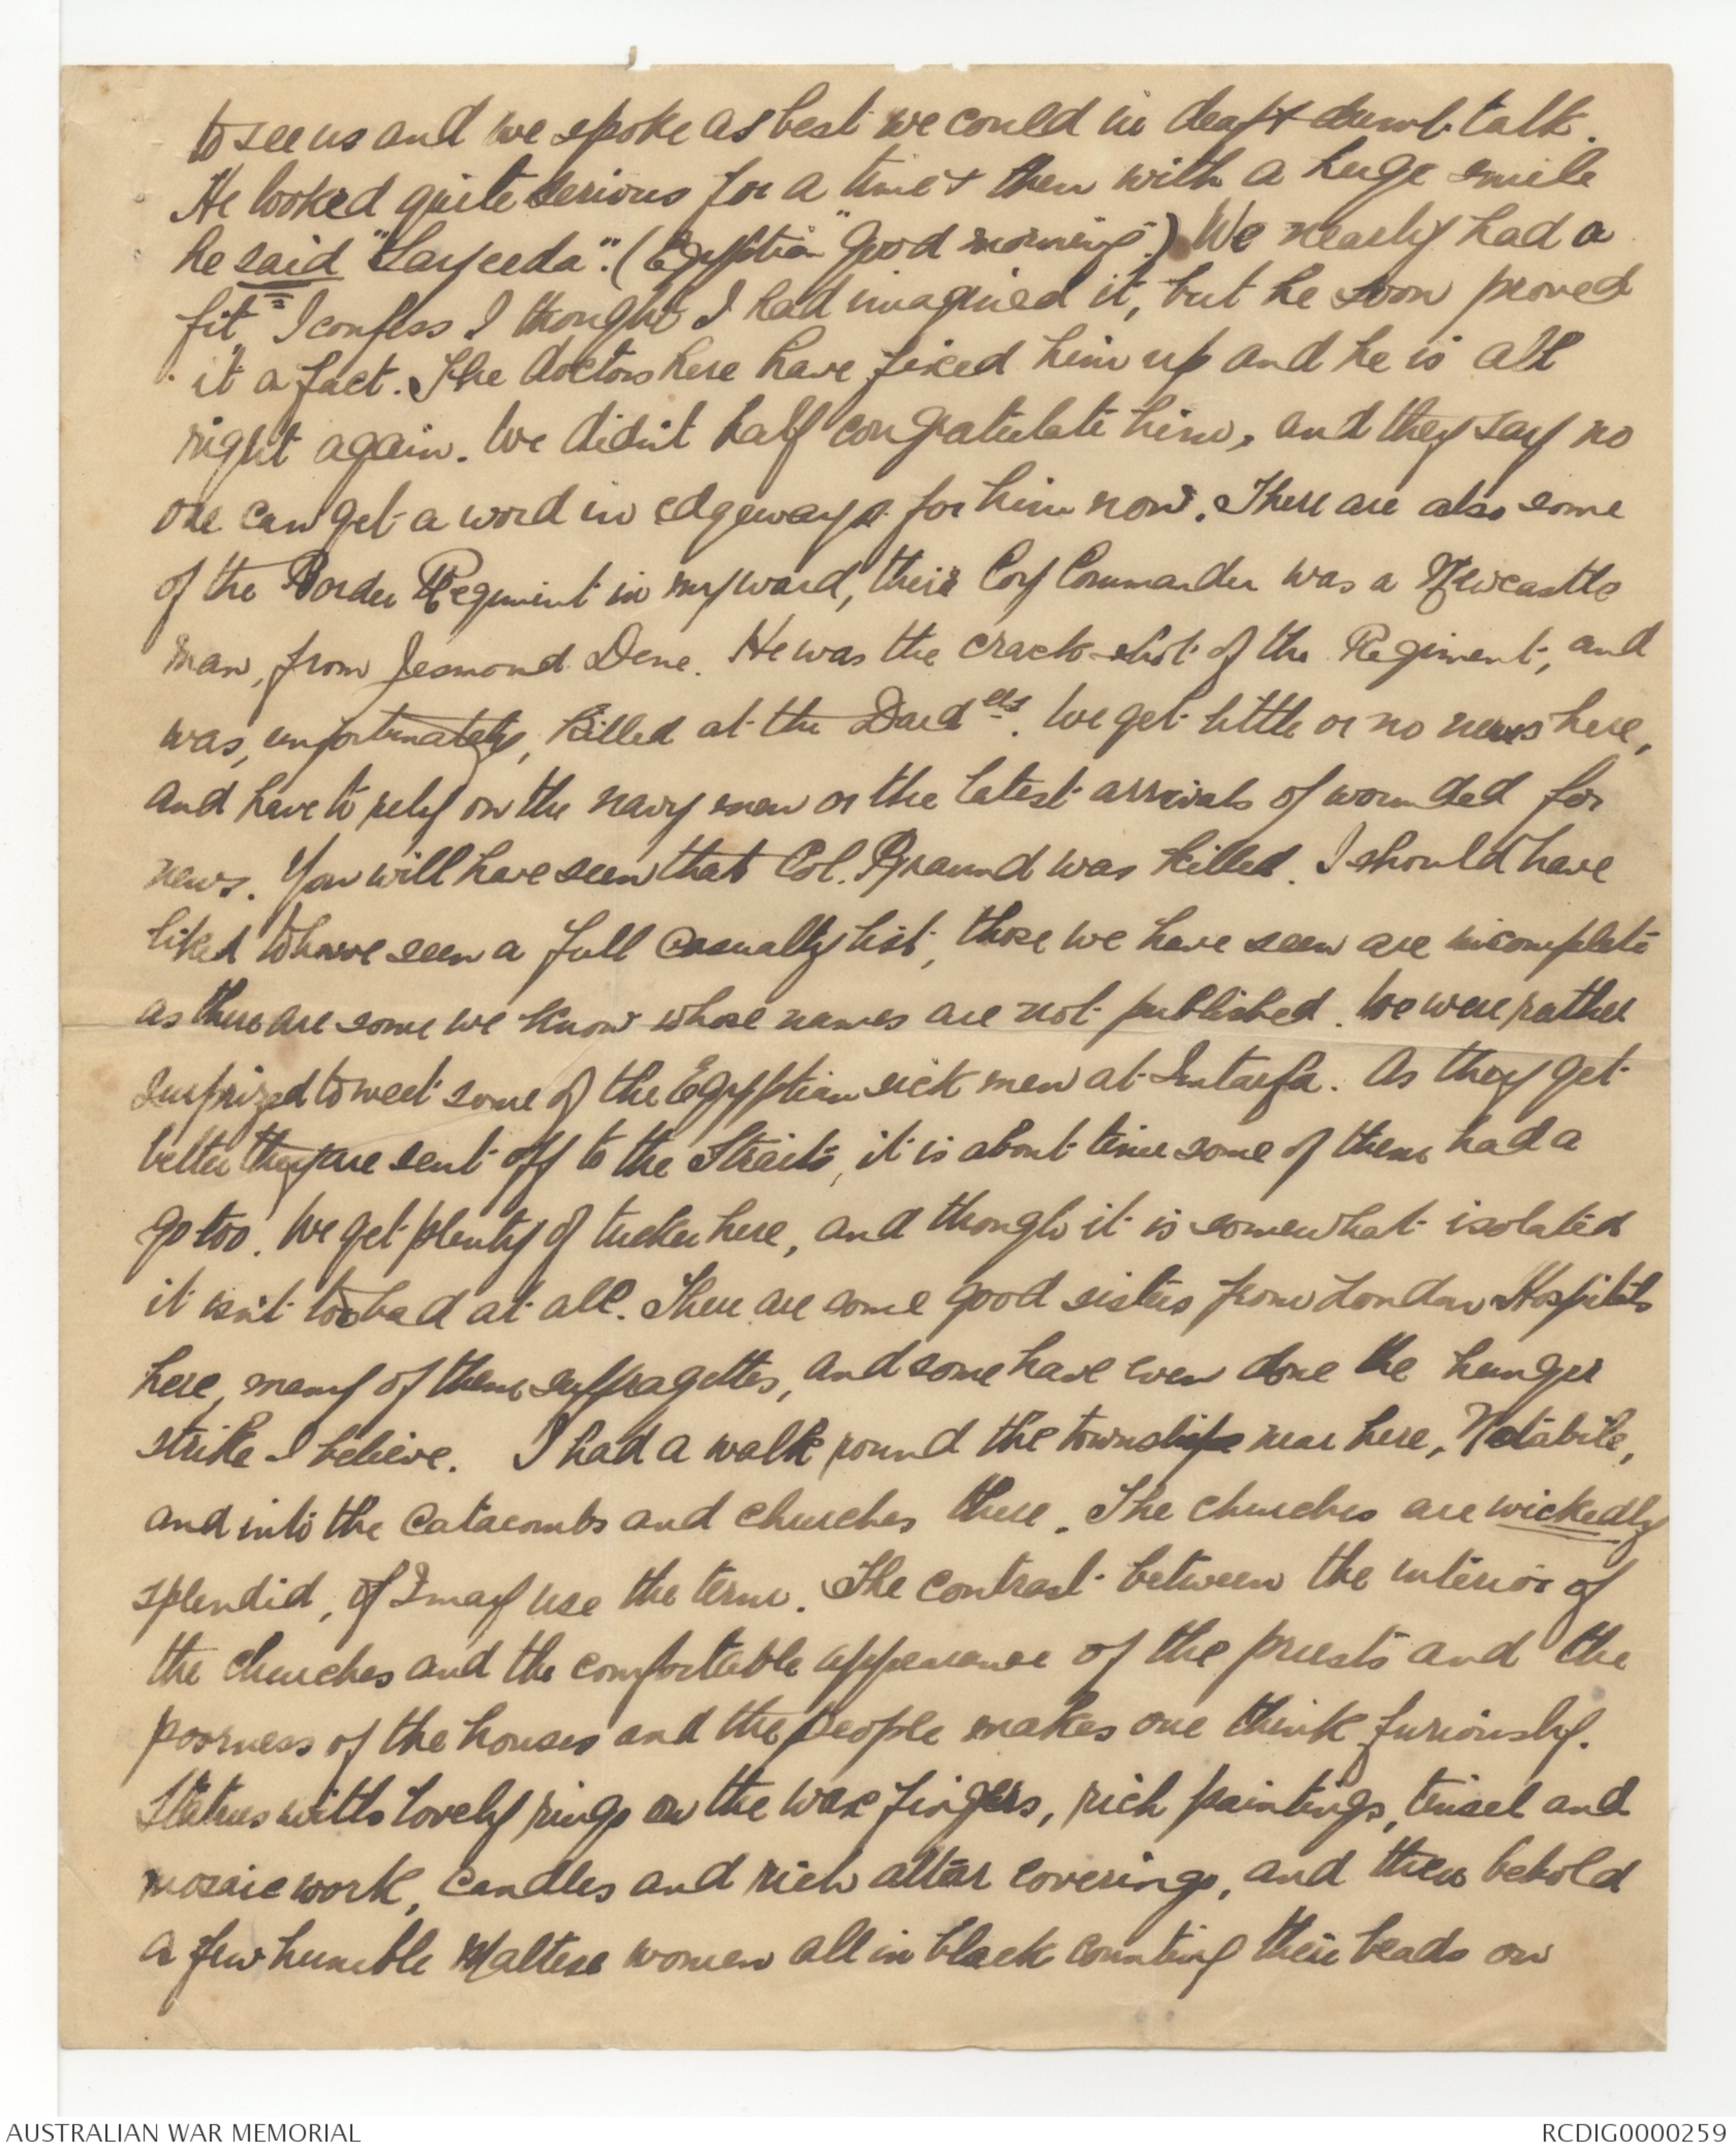 to see us and we spoke as best we could in deaf & dumb talk.
He looked quite serious for a time & then with a huge smile
he said "Sayeeda". (Egyptian "Good morning".) We nearly had a
fit, I confess I thought I had imagined it, but he soon proved
it a fact. The doctors here have fixed him up and he is all
right again. We didn't half congratulate him, and they say no
one can get a word in edgeways for him now. There are also some
of the Border Regiment in my ward, their Coy Commander was a Newcastle
man, from Jesmond Dene. He was the crack shot of the Regiment, and
was, unfortunately, killed at the Dardels. We get little or no news here,
and have to rely on the navy men or the latest arrivals of wounded for
news. You will have seen that Col. Braund was killed. I should have
liked to have seen a full casualty list, those we have seen are incomplete
as there are some we know whose names are not published. We were rather
surprized to meet some of the Egyptian sick men at Imtarfa. As they get
better they are sent off to the Straits, it is about time some of them had a
go too. We get plenty of tucker here, and though it is somewhat isolated
it isn't too bad at all. There are some good sisters from London Hospitals
here, many of them suffragettes, and some have even done the hunger
strike I believe. I had a walk round the township near here, Notabile,
and into the catacombs and churches there. The churches are wickedly
splendid, if I may use the term. The contrast between the interior of
the churches and the comfortable appearance of the priests and the
poorness of the houses and the people makes one think furiously.
Statues with lovely rings on the wax fingers, rich paintings, tinsel and
mosaic work, candles and rich altar coverings, and then behold
a few humble Maltese women all in black counting their beads on
AUSTRALIAN WAR MEMORIAL
RCDIG0000259